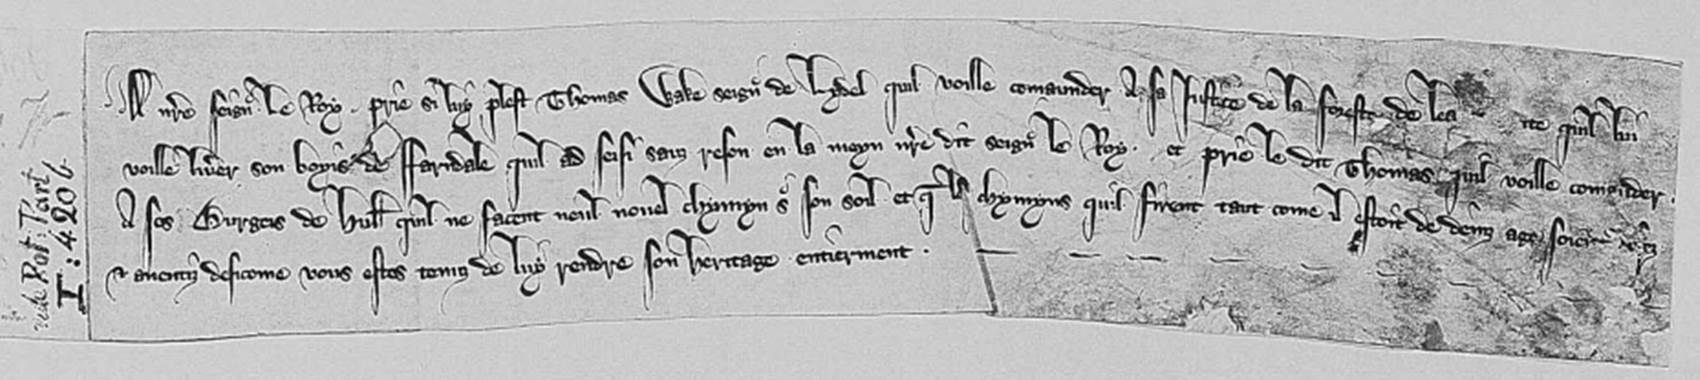 A nr̄e seign̄ le Roy . prie si luy plest Thomas Wake seign̄ de Lydel qil voille comaunder A sa Justice de la foreste de qil lui
voille liūer son boys de ffarndale qil ad seisi saunz reson en la meyn nr̄e dit seign̄ le Roy . et prie le dit Thomas qil voille comander
A ses Burgeis de Hull qil ne facent neul novel chymyn s̄ son soil et q̄ les chymyns qil firent tant come il estoit de deinz age soient
& anentiz desicome vous estes tenuz de luy rendre son heritage entierment .
vide Rot: Parl
I: 420 b